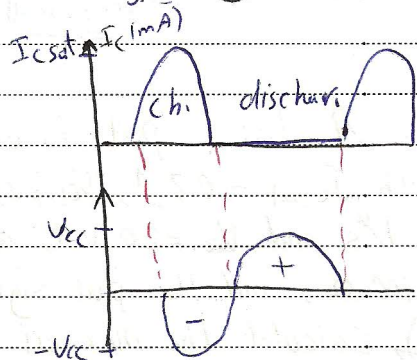 Icsat Ic(mA)
ch. dischar.
Vcc
+
-
-Vcc